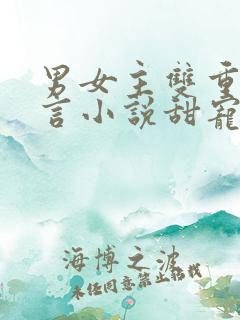 男女主雙重
言小說甜寵
海博之波
未经同意禁止转载